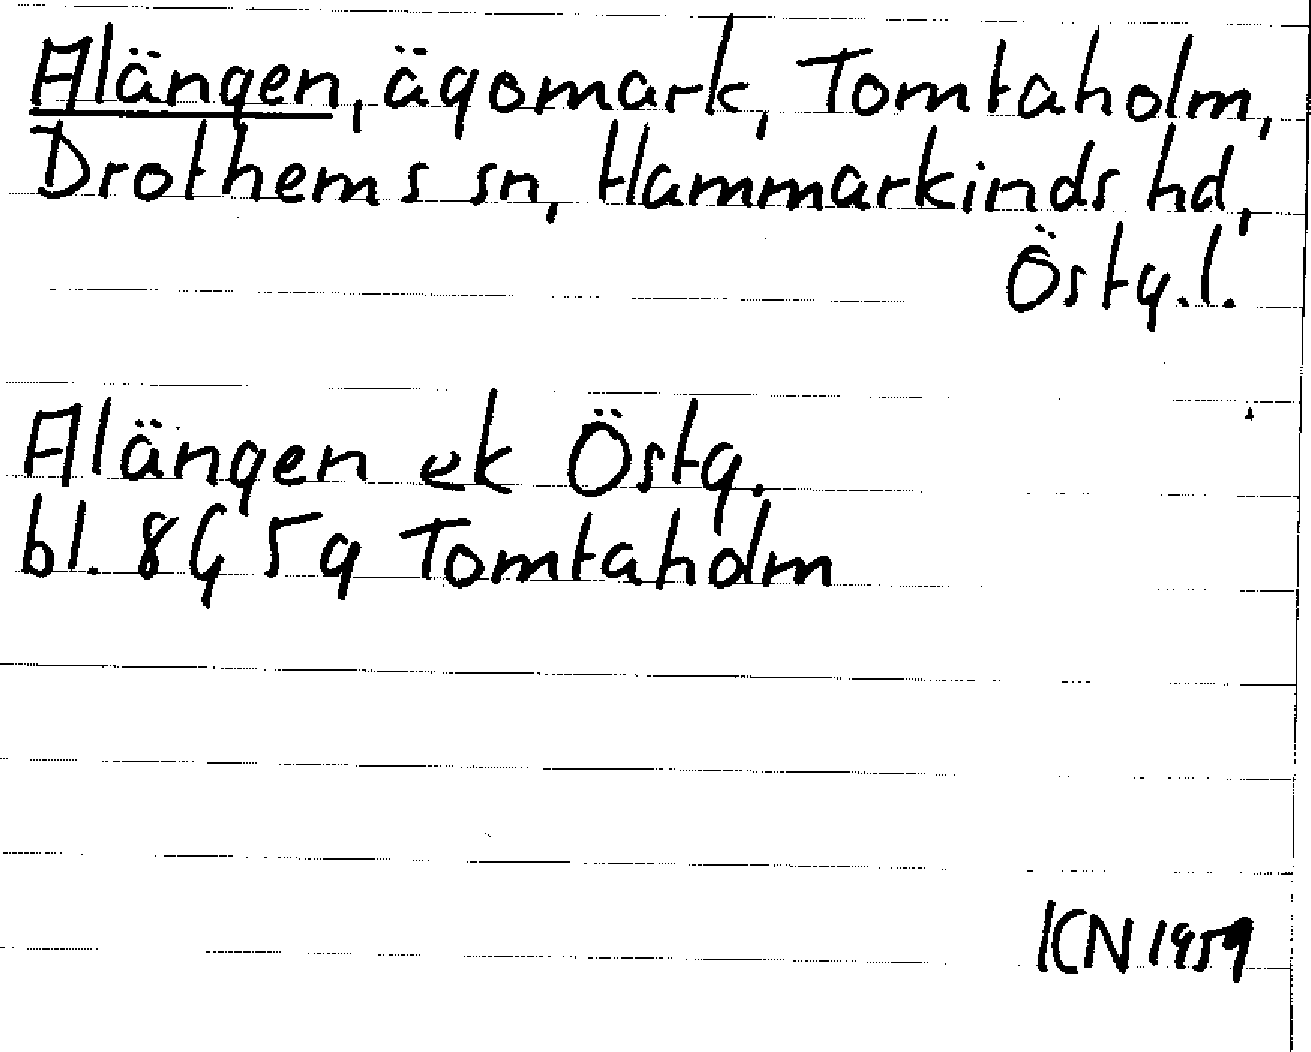 Alängen, ägomark, Tomtaholm,
Drothems sn, Hammarkinds hd,
Östg.l.
Alängen ek Östg.
bl. 8G 5g Tomtaholm
KN 1959